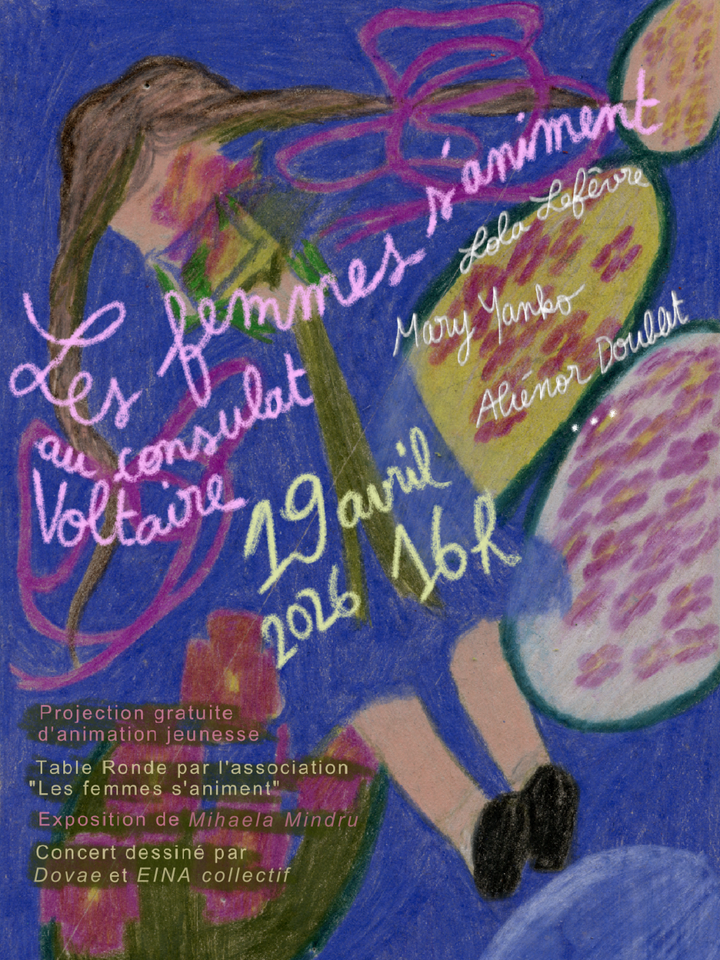 Les femmes s'animent
au consulat
Voltaire
Lola Lefèvre
Mary Yanko
Aliénor Doublat
...
19 avril
2026 16h
Projection gratuite
d'animation jeunesse
Table Ronde par l'association
"Les femmes s'animent"
Exposition de Mihaela Mindru
Concert dessiné par
Dovae et EINA collectif